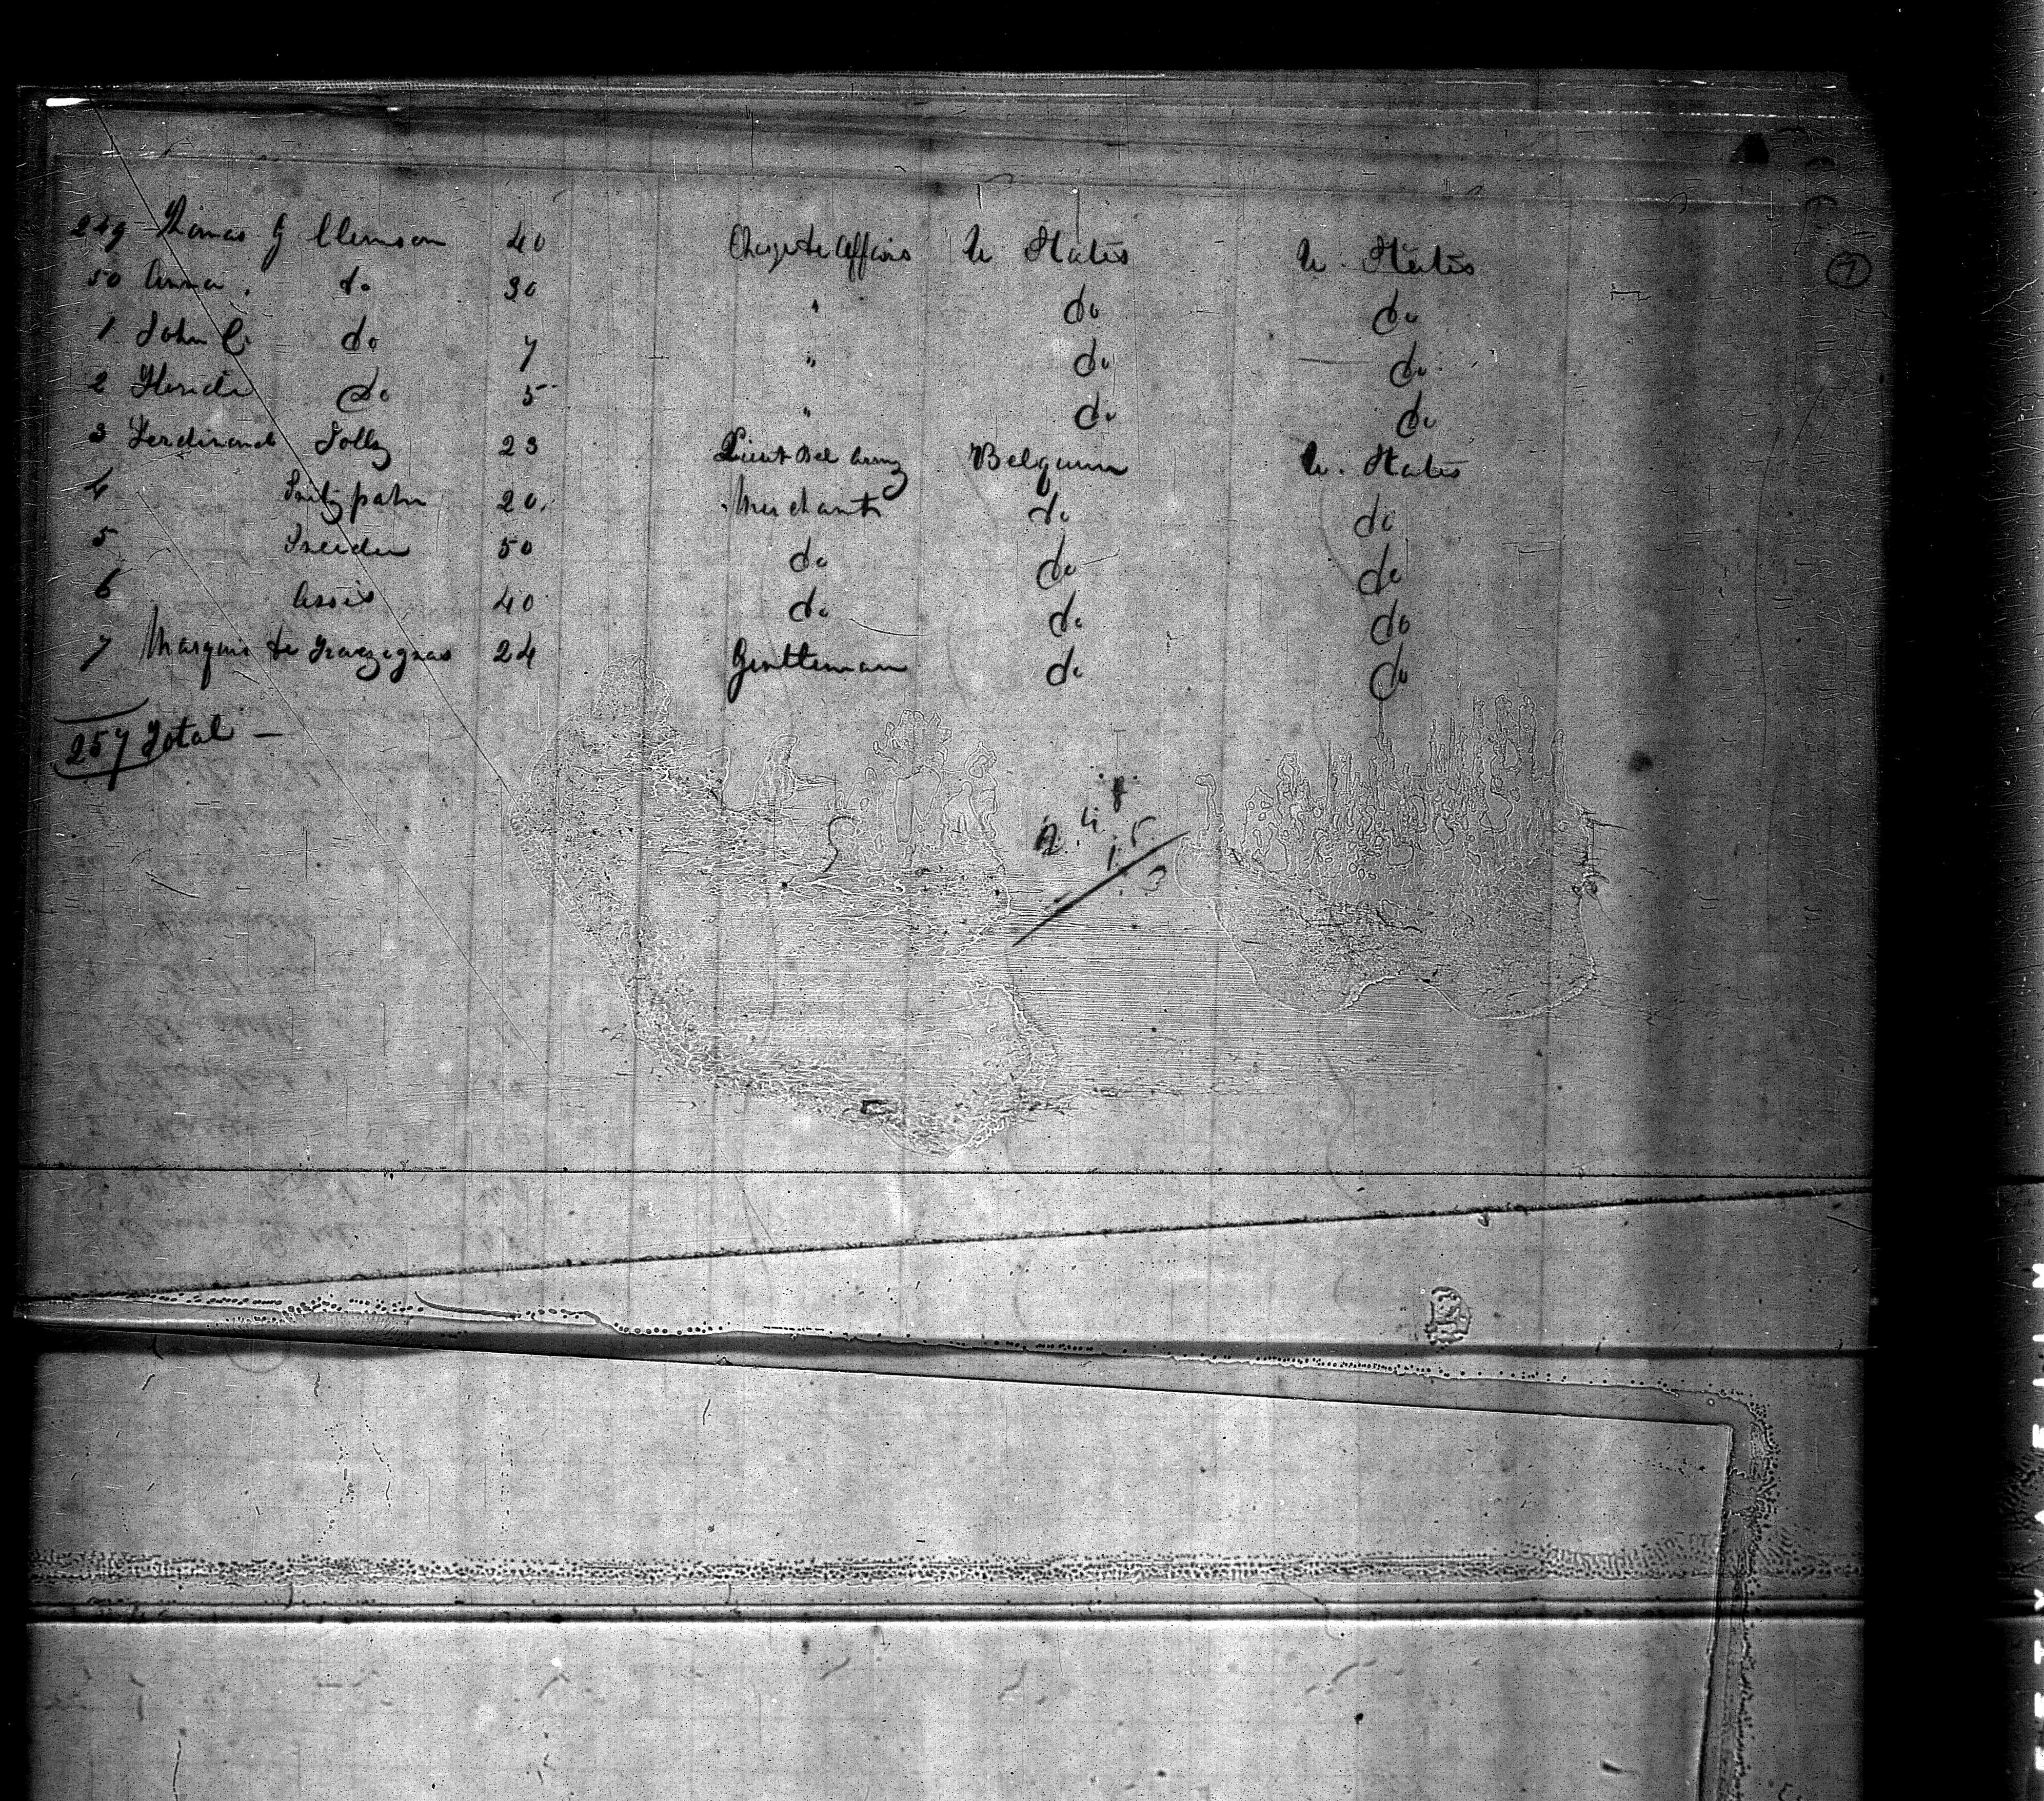 249 Thomas G Clemson 40 Charge de Affairs U States U. States
50 Anna do 30 " do do
1 John C. do 7 " do do
2 Floride do 5 " do do
3 Ferdinand Jolly 23 Lieut Bel Army Belguim U. States
4 20 Merchant do do
5 50 do do do
6 Assis 40 do do do
7 Marquis de 24 Gentleman do do
257 Total —